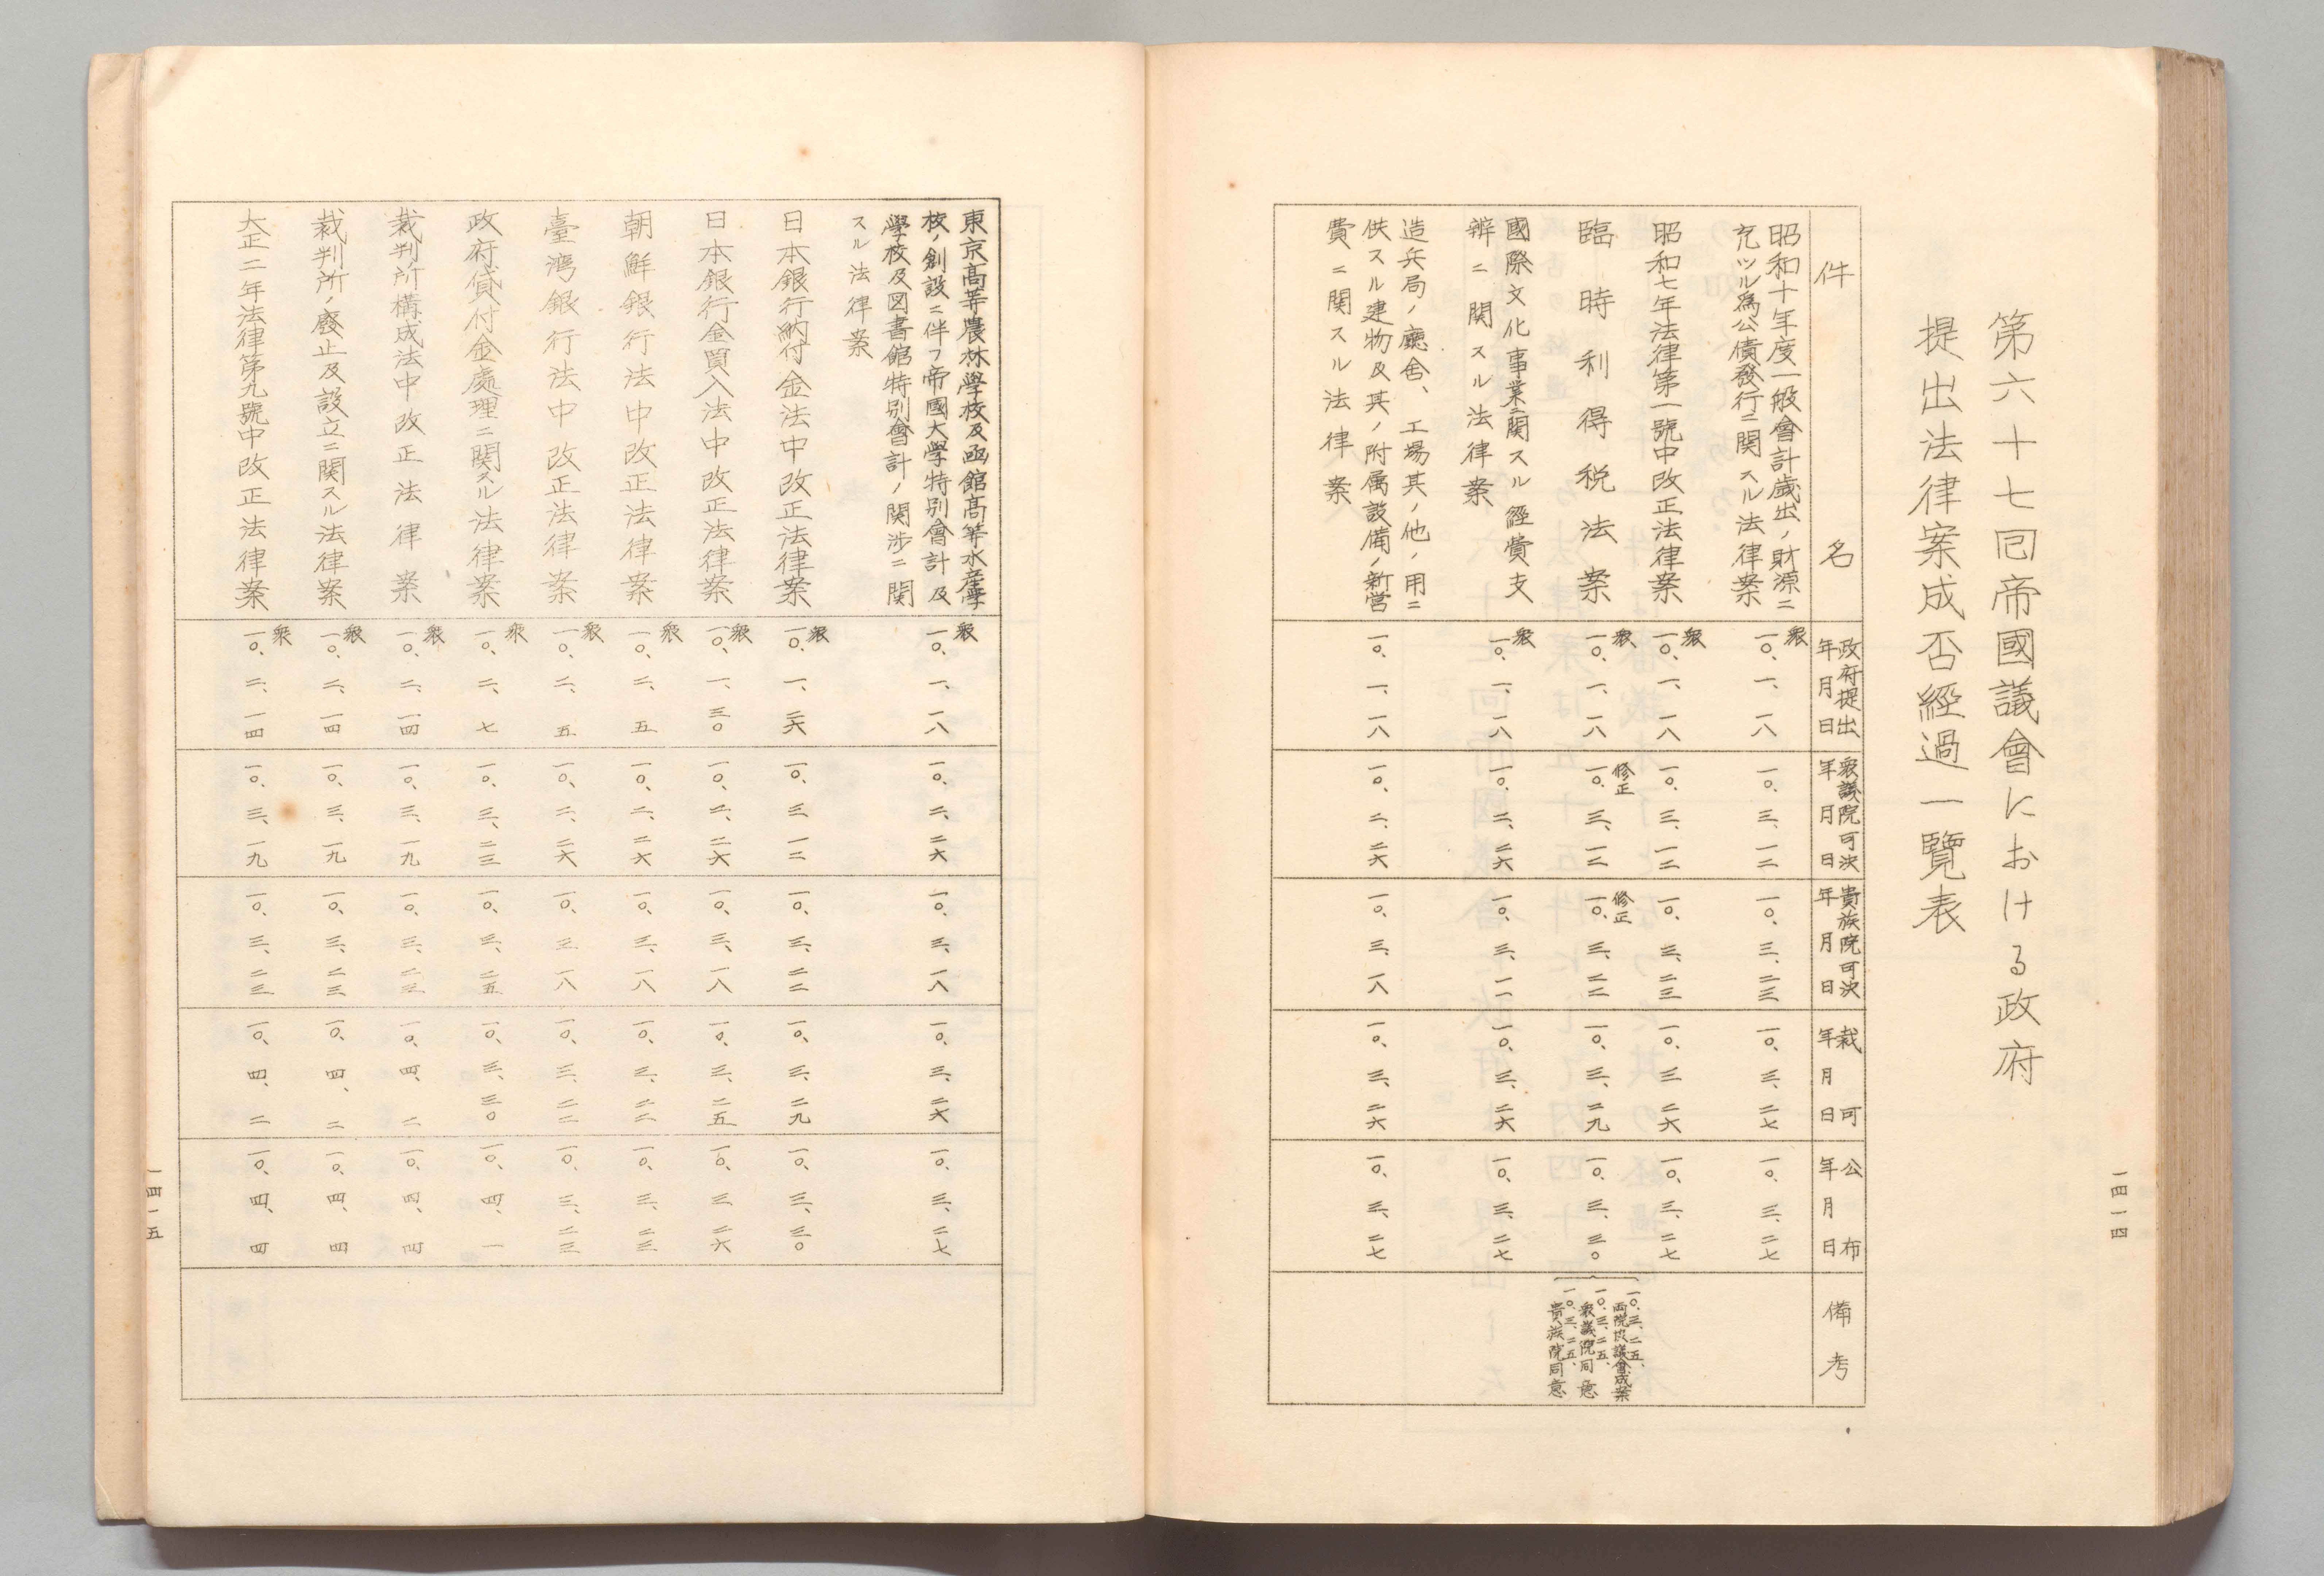 第六十七回帝國議會における政府
提出法律案成否經過一覽表
件名
政府提出年月日
衆議院可決年月日
貴族院可決年月日
裁可年月日
公布年月日
備考
昭和十年度一般會計歳出ノ財源ニ
充ツル為公債發行ニ関スル法律案
衆
一〇、一、一八
一〇、三、一二
一〇、三、二三
一〇、三、二七
一〇、三、二七
昭和七年法律第一號中改正法律案
衆
一〇、一、一八
一〇、三、一二
一〇、三、二三
一〇、三、二六
一〇、三、二七
臨時利得税法案
衆
一〇、一、一八
修正
一〇、三、一二
修正
一〇、三、二二
一〇、三、二九
一〇、三、三〇
一〇、三、二五、
両院協議會成案
一〇、三、二五、
衆議院同意
一〇、三、二五、
貴族院同意
國際文化事業ニ関スル經費支
辨ニ関スル法律案
衆
一〇、一、一八
一〇、二、二六
一〇、三、一一
一〇、三、二六
一〇、三、二七
造兵局ノ廳舎、工場其ノ他ノ用ニ
供スル建物及其ノ附属設備ノ新営
費ニ関スル法律案
一〇、一、一八
一〇、二、二六
一〇、三、一八
一〇、三、二六
一〇、三、二七
一四一四
東京高等農林學校及函館高等水産學
校ノ創設ニ伴フ帝國大學特別會計及
學校及図書館特別會計ノ関渉ニ関
スル法律案
衆
一〇、一、一八
一〇、二、二六
一〇、三、一八
一〇、三、二六
一〇、三、二七
日本銀行納付金法中改正法律案
衆
一〇、一、二六
一〇、三、一二
一〇、三、二二
一〇、三、二九
一〇、三、三〇
日本銀行金買入法中改正法律案
衆
一〇、一、三〇
一〇、二、二六
一〇、三、一八
一〇、三、二五
一〇、三、二六
朝鮮銀行法中改正法律案
衆
一〇、二、五
一〇、二、二六
一〇、三、一八
一〇、三、二二
一〇、三、二三
臺湾銀行法中改正法律案
衆
一〇、二、五
一〇、二、二六
一〇、三、一八
一〇、三、二二
一〇、三、二三
政府貸付金處理ニ関スル法律案
衆
一〇、二、七
一〇、三、二三
一〇、三、二五
一〇、三、三〇
一〇、四、一
裁判所構成法中改正法律案
衆
一〇、二、一四
一〇、三、一九
一〇、三、二三
一〇、四、二
一〇、四、四
裁判所ノ廢止及設立ニ関スル法律案
衆
一〇、二、一四
一〇、三、一九
一〇、三、二三
一〇、四、二
一〇、四、四
大正二年法律第九號中改正法律案
衆
一〇、二、一四
一〇、三、一九
一〇、三、二三
一〇、四、二
一〇、四、四
一四一五